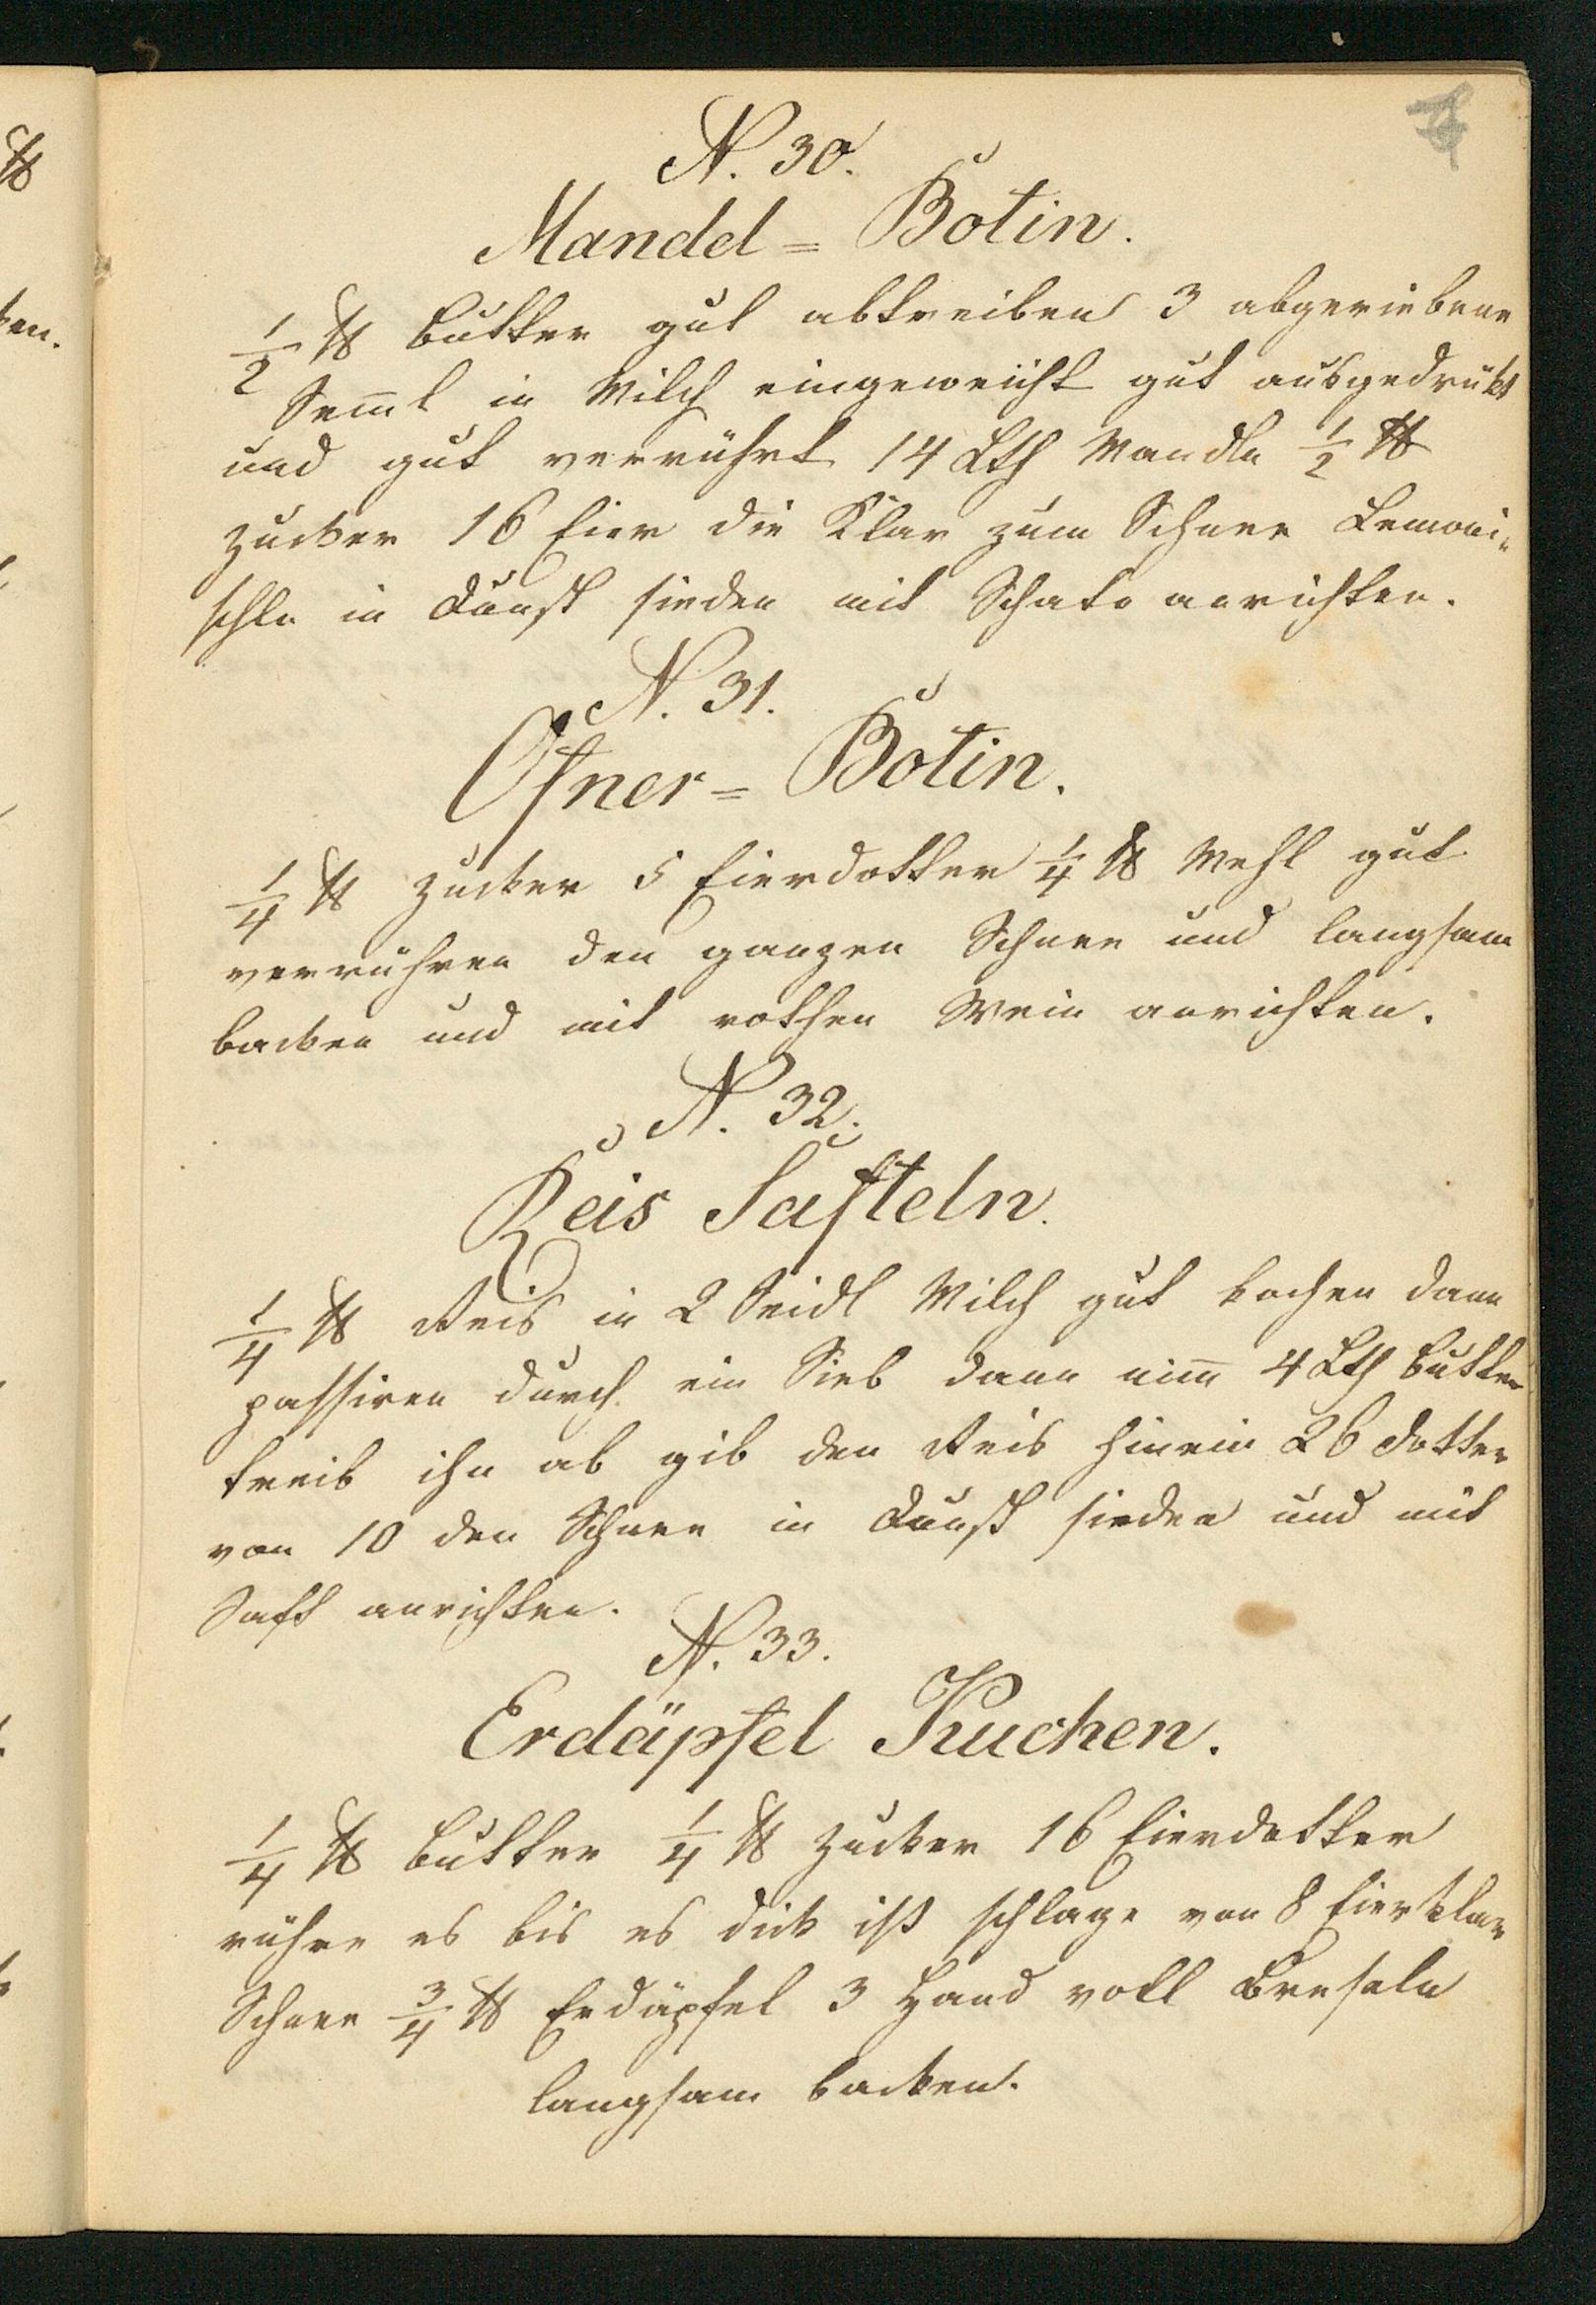 N. 30.
Mandel= Botin.
1/2 ℔ Butter gut abtreiben 3 abgeriebene
Sem̄l in Milch eingeweicht gut ausgedrukt
und gut verrührt 14 Lth Mandln 1/2 ℔
Zucker 16 Eier die Klar zum Schnee Lemoni=
schln in Dunst sieden mit Schato anrichten.
N. 31.
Ofner= Botin.
1/4 ℔ Zucker 5 Eierdotter 1/4 ℔ Mehl gut
verrühren den ganzen Schnee und langsam
backen und mit rothen Wein anrichten.
N. 32.
Reis Safteln.
1/4 ℔ Reis in 2 Seidl Milch gut kochen dann
passiren durch ein Sieb dann nim̄ 4 Lth Butter
treib ihn ab gib den Reis hinein 26 Dotter
von 10 den Schnee in Dunst sieden und mit
Saft anrichten.
N. 33.
Erdäpfel Kuchen.
1/4 ℔ Butter 1/4 ℔ Zucker 16 Eierdotter
rühre es bis es dick ist schlage von 8 Eierklar
Schnee 3/4 ℔ Erdäpfel 3 Hand voll Breseln
langsam backen.